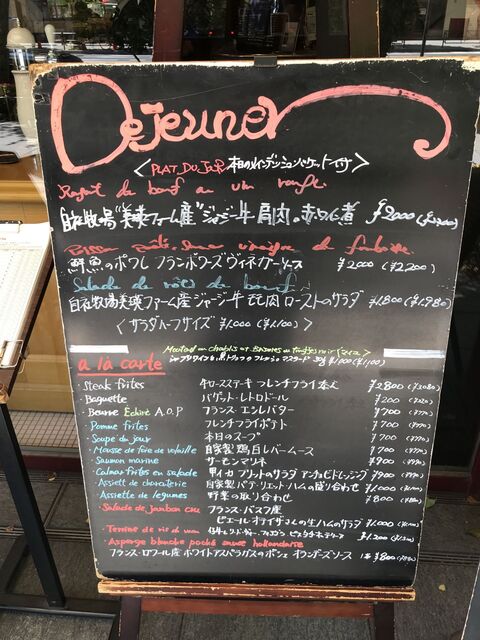 Dejeuner
< PLAT DU JOUR 本日のメインディッシュ バケット付 >
Ragout du bœuf au vin rouge
自社牧場"美瑛ファーム産"ジャージー牛 肩肉の赤ワイン煮 ¥2000
Poisson poêlé, sauce vinaigre de framboise
鮮魚のポワレ フランボワーズヴィネガーソース ¥2000 (¥2,200)
Salade de rôti de bœuf
自社牧場美瑛ファーム産ジャージー牛 モモ肉 ローストのサラダ ¥1,800 (¥1,980)
<サラダハーフサイズ ¥1,000 (¥1,100)>
¥1000 (¥1,100)
a la carte
・Steak frites 牛ロースステーキ フレンチフライ添え ¥2800 (¥3080)
・Baguette バゲット・レトロドール ¥200
・Beurre Échiré A.O.P フランス・エシレバター ¥700 (¥770)
・Pomme frites フレンチフライポテト ¥700 (¥770)
・Soupe du jour 本日のスープ ¥700 (¥770)
・Mousse de foie de volaille 自家製 鶏白レバームース ¥700 (¥770)
・Saumon marine サーモンマリネ ¥900 (¥990)
・Calmar frites en salade 甲イカ フリットのサラダ アンチョビドレッシング ¥900 (¥990)
・Assiett de charcuterie 自家製パテ・リエット・ハムの盛り合わせ ¥1,000
・Assiette de legumes 野菜の取り合わせ ¥800
・Salade de jambon cru フランス・バスク産
ピエール オテイザさんの生ハムのサラダ ¥1,000
・Terrine de ris de veau ¥1,200
・Asperge blanche poché sauce hollandaise
フランス・ロワール産 ホワイトアスパラガスのポシェ オランデーズソース 1本 ¥800